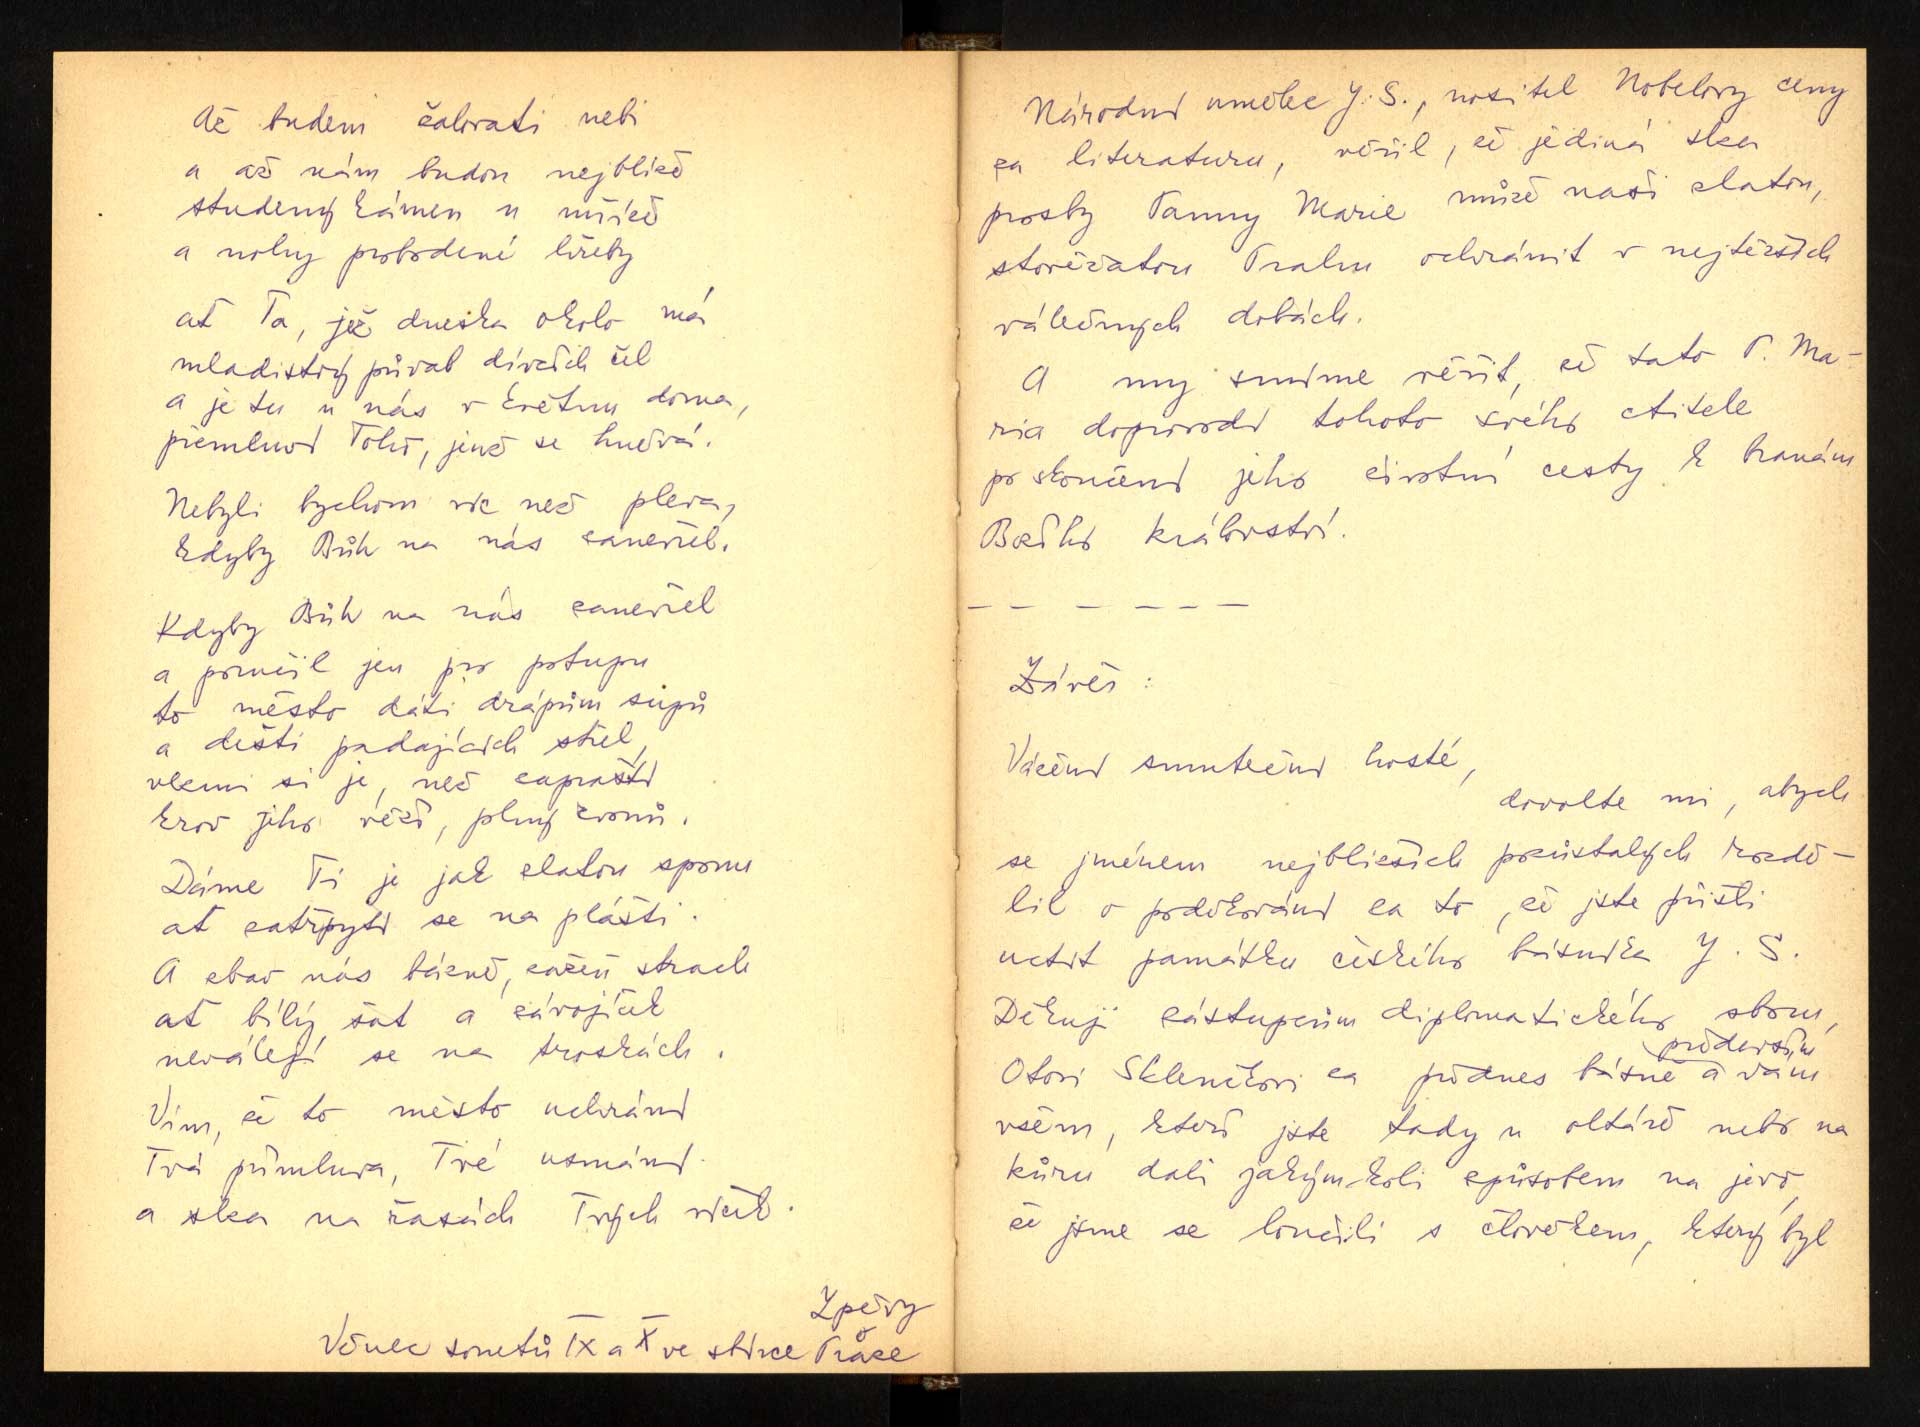 Až budem žalovati nebi
a až nám budou nejblíže
studený kámen u mříže
a nohy probodené hřeby
ať Ta, jež dneska okolo má
mladistvý půvab dívčích čel
a je tu u nás v květnu doma,
přemluví Toho, jenž se hněvá.
Nebyli bychom víc než pleva,
kdyby Bůh na nás zanevřel.
Kdyby Bůh na nás zanevřel
a poručil jen pro potupu
to město dáti drápům supů
a dešti padajících střel,
vezmi si je, než zapraští
krov jeho věží, plný zvonů.
Dáme Ti je jak zlatou sponu
ať zatřpytí se na plášti.
A zbav nás bázně, zažeň strach
ať bílý šat a závojíček
neválejí se na troskách.
Vím, že to město uchrání
Tvá přímluva, Tvé usmání
a slza na řasách Tvých víček.
Zpěvy
Věnec sonetů IX a X ve sbírce Praze
Národní umělec J. S., nositel Nobelovy ceny
za literaturu, věřil, že jediná slza
prosby Panny Marie může naši zlatou,
stověžatou Prahu ochránit v nejtěžších
válečných dobách.
A my smíme věřit, že tato P. Ma-
ria doprovodí tohoto svého ctitele
po skončení jeho životní cesty k branám
Božího království.
– – – – – –
Závěr :
Vážení smuteční hosté,
dovolte mi, abych
se jménem nejbližších pozůstalých rozdě-
lil o poděkování za to, že jste přišli
uctít památku českého básníka J. S.
Děkuji zástupcům diplomatického sboru,
především
Otovi Sklenčkovi za přednes básně a vám
všem, kteří jste tady u oltáře nebo na
kůru dali jakýmkoli způsobem na jevo,
že jsme se loučili s člověkem, který byl